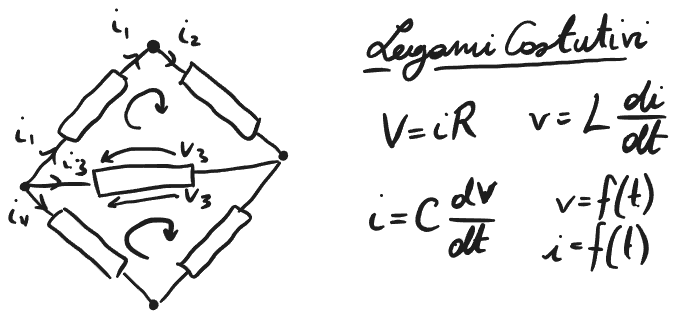 i₁
i₂
i₁
i₃
V₃
V₃
i₄
Legami Costutivi
V=iR
v=L di/dt
i=C dv/dt
v=f(t)
i=f(t)